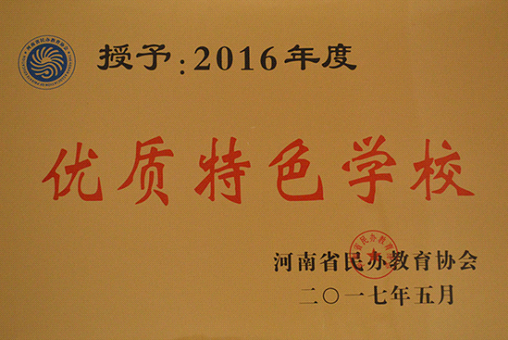 授予:2016年度
优质特色学校
河南省民办教育协会
二〇一七年五月